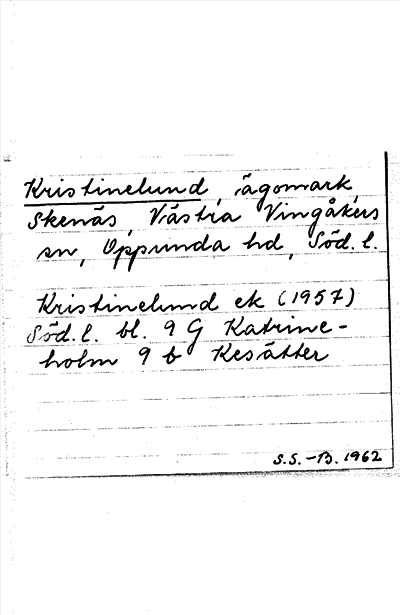 Kristinelund, ägomark,
Skenäs, Västra Vingåkers
sn, Oppunda hd, Söd. l.
Kristinelund ek (1957)
Söd. l. bl. 9 G Katrine-
holm 9 b Kesätter
S.S.-B. 1962